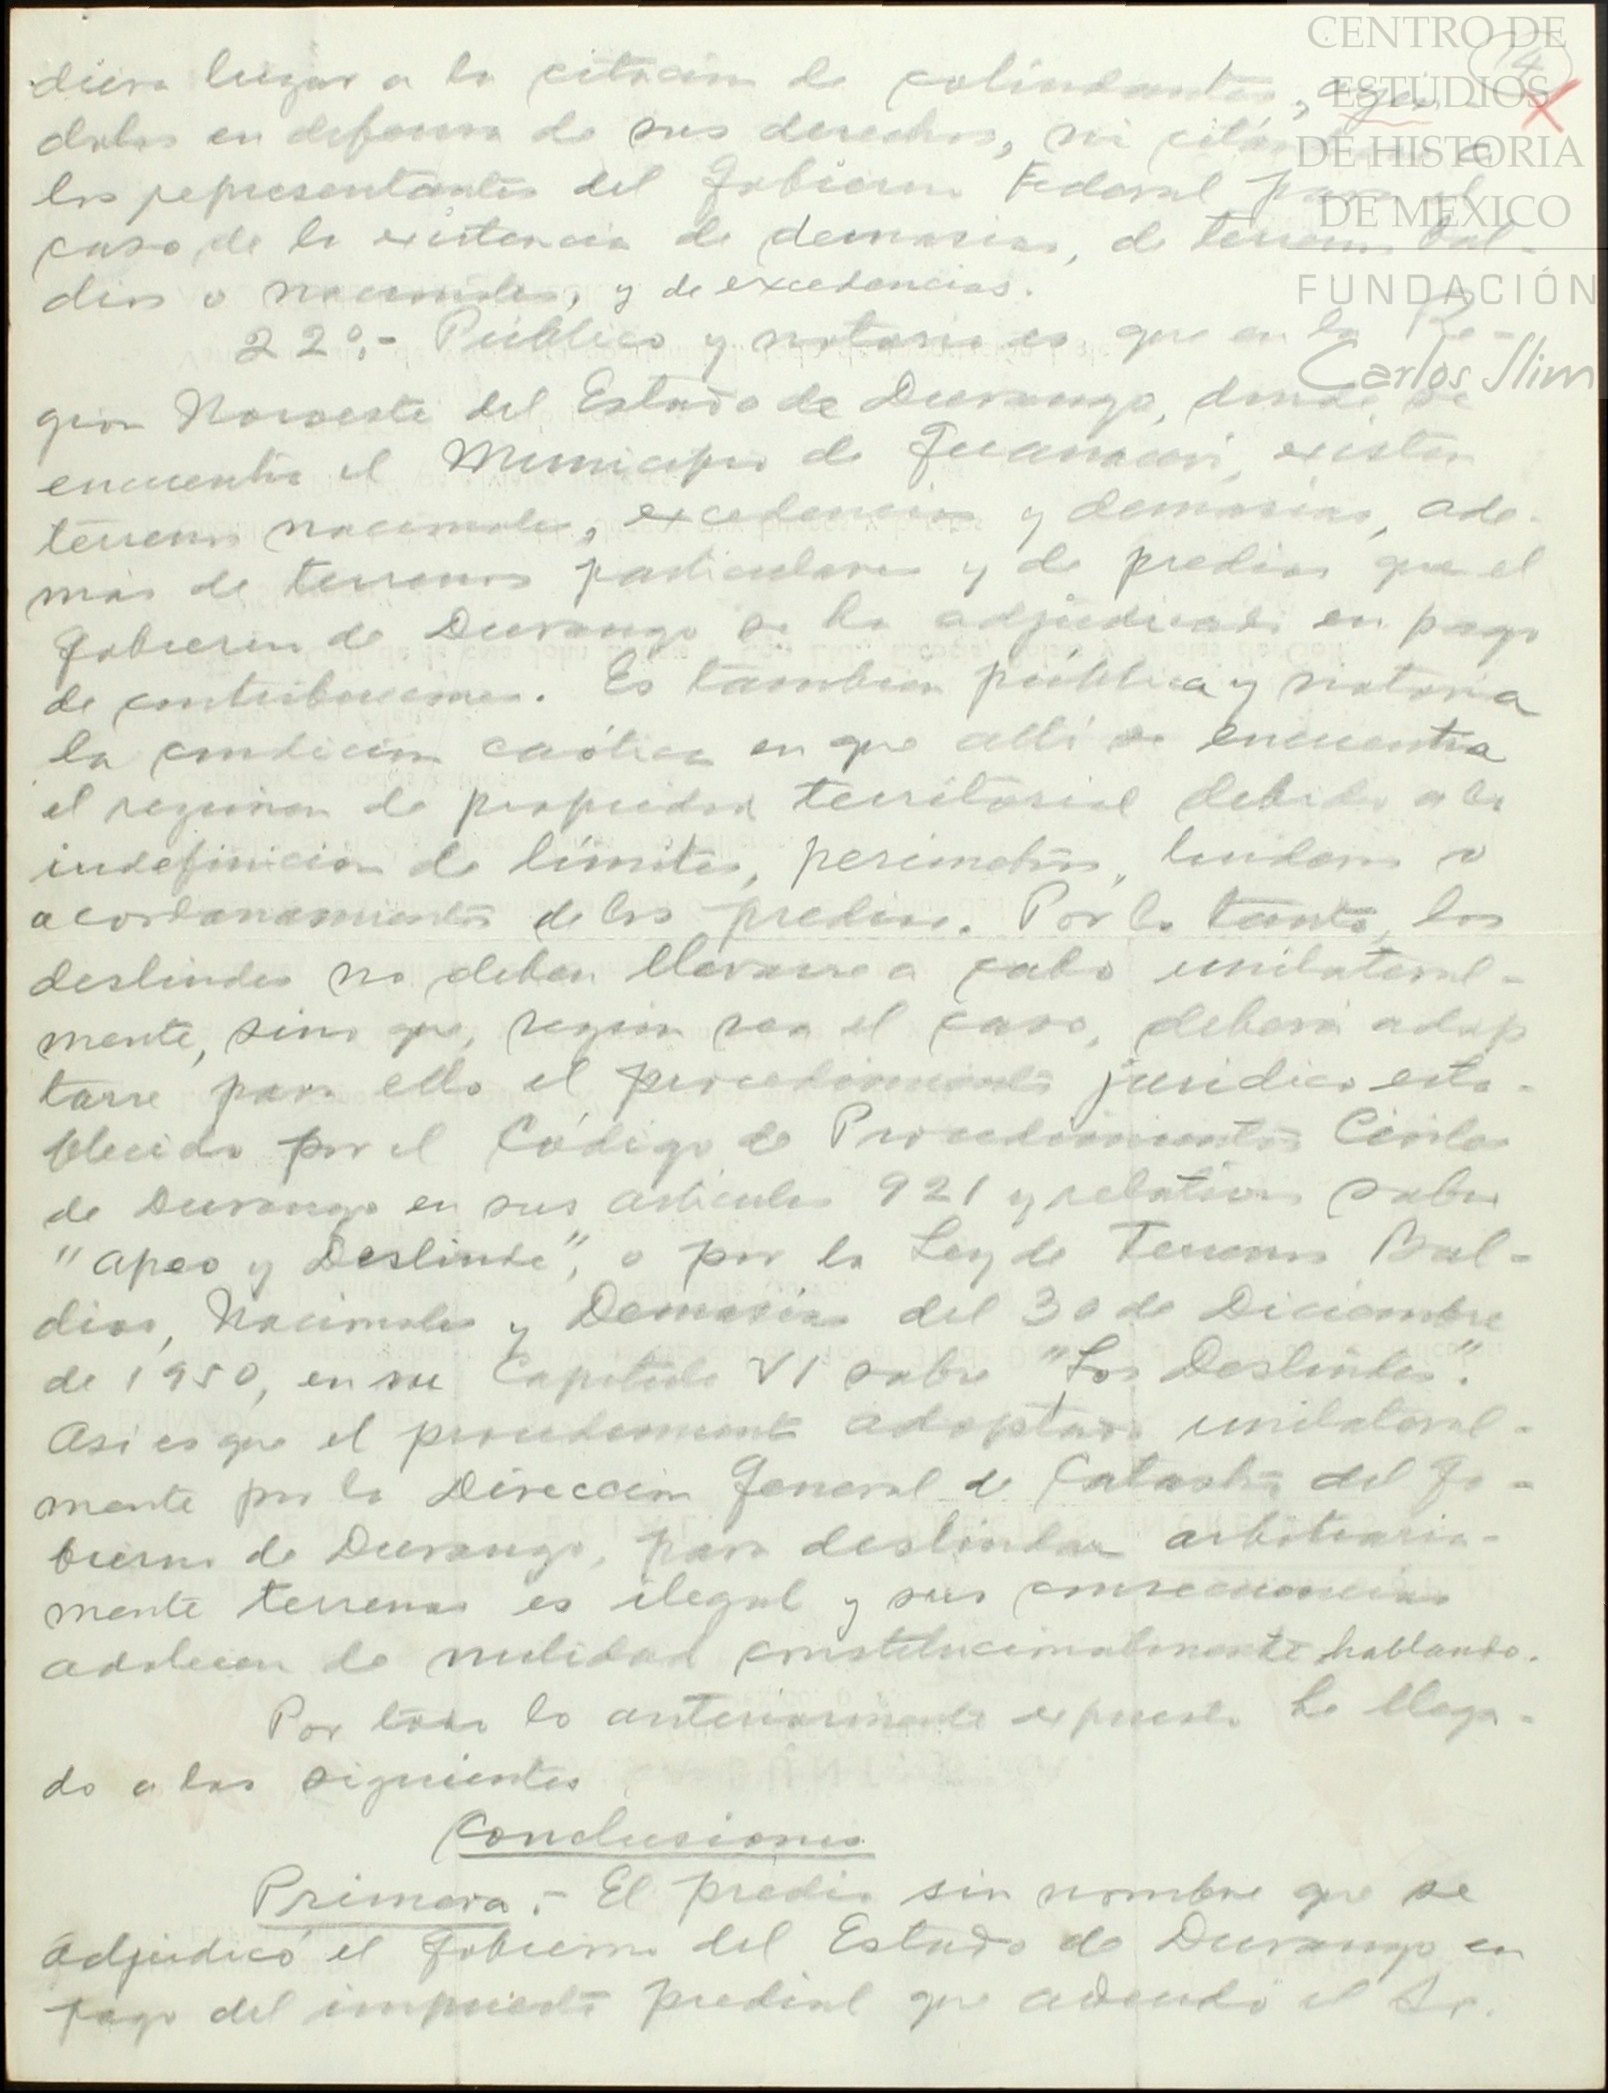 CENTRO DE
ESTUDIOS
DE HISTORIA
DE MEXICO
FUNDACIÓN
Carlos Slim
14
diera lugar a la citación de colindantes,
dales en defensa de sus derechos, ni
los representantes del Gobierno Federal para el
caso de la existencia de demasias, de terrenos bal-
dios o nacionales, y de excedencias.
22º.- Público y notorio es, que en la Re-
gion Noroeste del Estado de Durango, donde se
encuentra el Municipio de Guanaceví, existen
terrenos nacionales, excedencias y demasias, ade-
más de terrenos particulares y de predios que el
Gobierno de Durango se ha adjudicado en pago
de contribuciones. Es tambien pública y notoria
la condición caótica en que allí se encuentra
el regimen de propiedad territorial debido a la
indefinicion de límites, perimetros, linderos o
acordonamientos de los predios. Por lo tanto, los
deslindes no deben llevarse a cabo unilateral-
mente, sino que, segun sea el caso, deberá adop
tarse para ello el procedimiento juridico esta-
blecido por el Código de Procedimientos Civiles
de Durango en sus articulos 921 y relativos sobre
"Apeo y Deslinde", o por la Ley de Terrenos Bal-
dios, Nacionales y Demasias del 30 de Diciembre
de 1950, en su Capitulo VI sobre "Los Deslindes".
Asi es que el procedimiento adoptado unilateral-
mente por la Dirección General de Catastro del Go-
bierno de Durango, para deslindar arbitraria-
mente terrenos es ilegal y sus consecuencias
adolecen de nulidad constitucionalmente hablando.
Por todo lo anteriormente expuesto he llega-
do a las siguientes
Conclusiones
Primera.- El predio sin nombre que se
adjudicó el Gobierno del Estado de Durango en
pago del impuesto predial que adeudó el Sr.